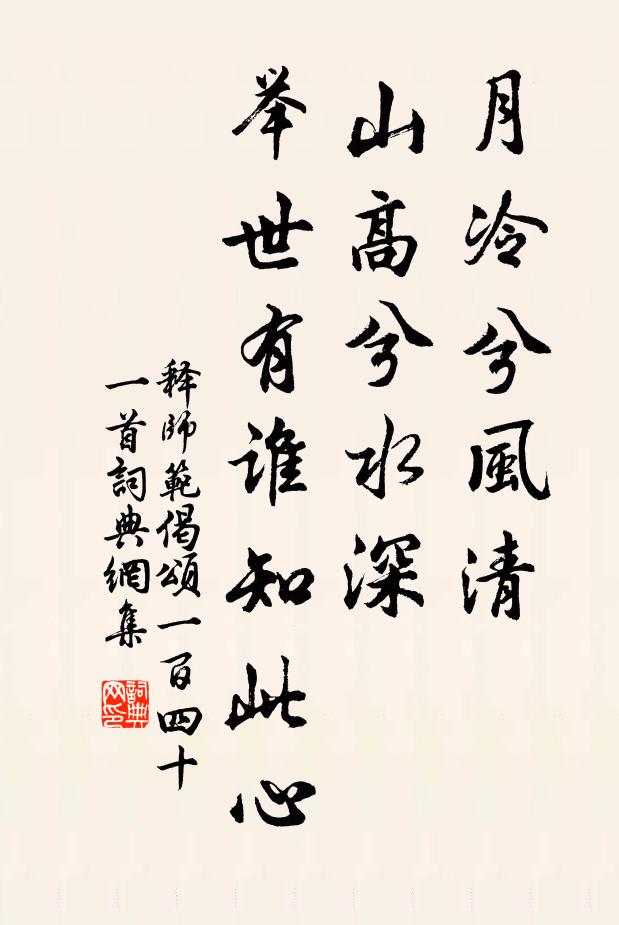 月冷兮風清
山高兮水深
举世有谁知此心
释師範偈頌一百四十
一首詞典網集
詞典网印